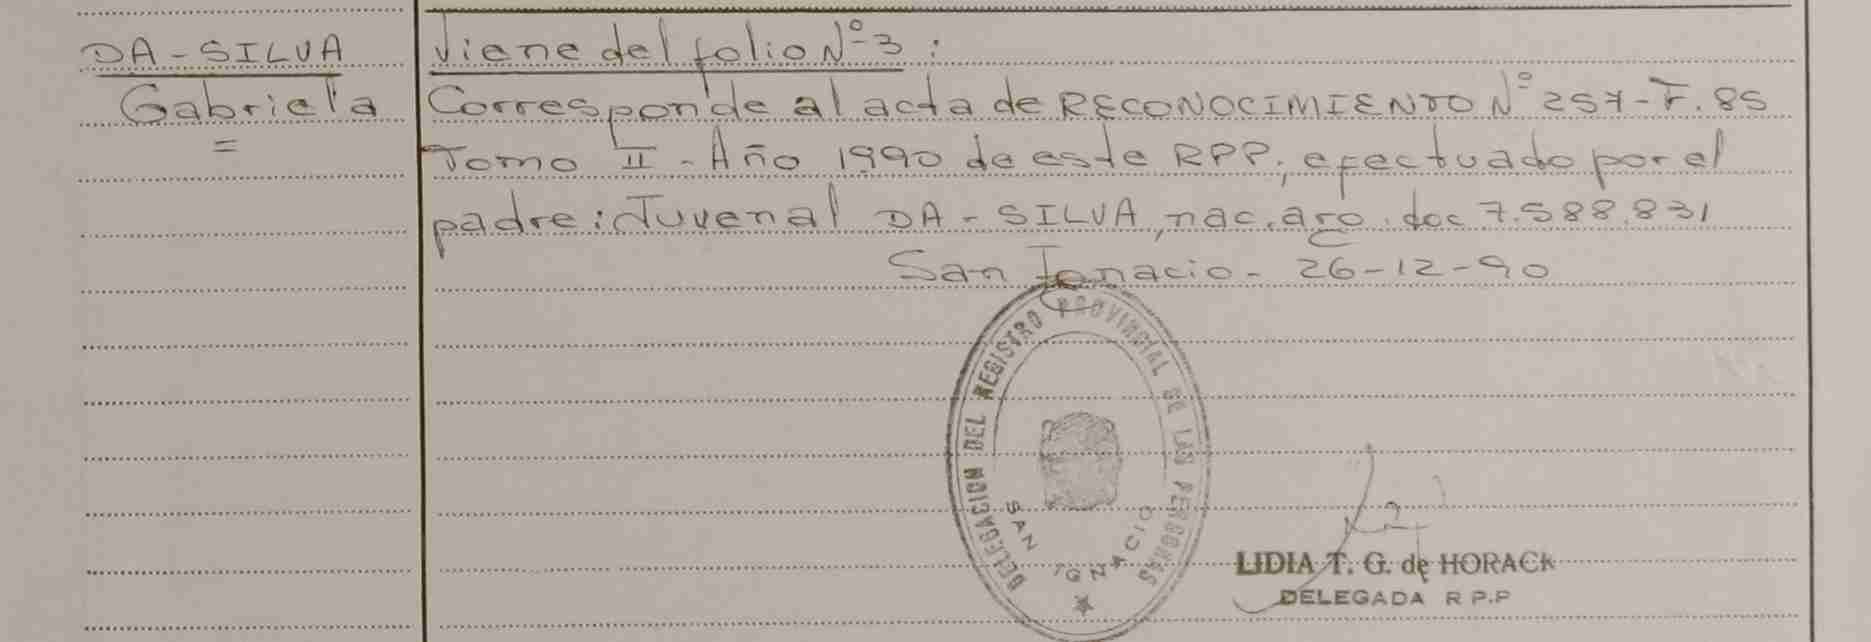 DA-SILVA
Gabriela
=
Viene del folio Nº 3:
Corresponde al acta de RECONOCIMIENTO Nº 257-F.85
Tomo II - Año 1990 de este RPP, efectuado por el
padre: Juvenal DA-SILVA, nac. arg. doc 7.588.831
San Ignacio - 26-12-90
DELEGACION DEL REGISTRO PROVINCIAL DE LAS PERSONAS
SAN IGNACIO
LIDIA T. G. de HORACK
DELEGADA R P.P